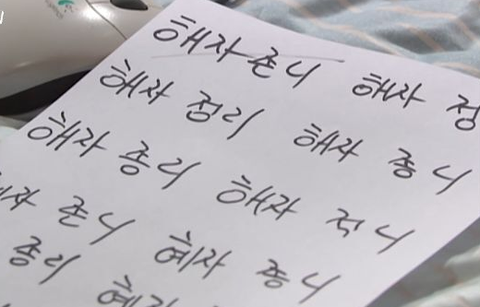 해자존니 해자 정
해자 정리 해자 종니
해자 종리 해자 적니
자 존니 혜자 종니
종리 혜자